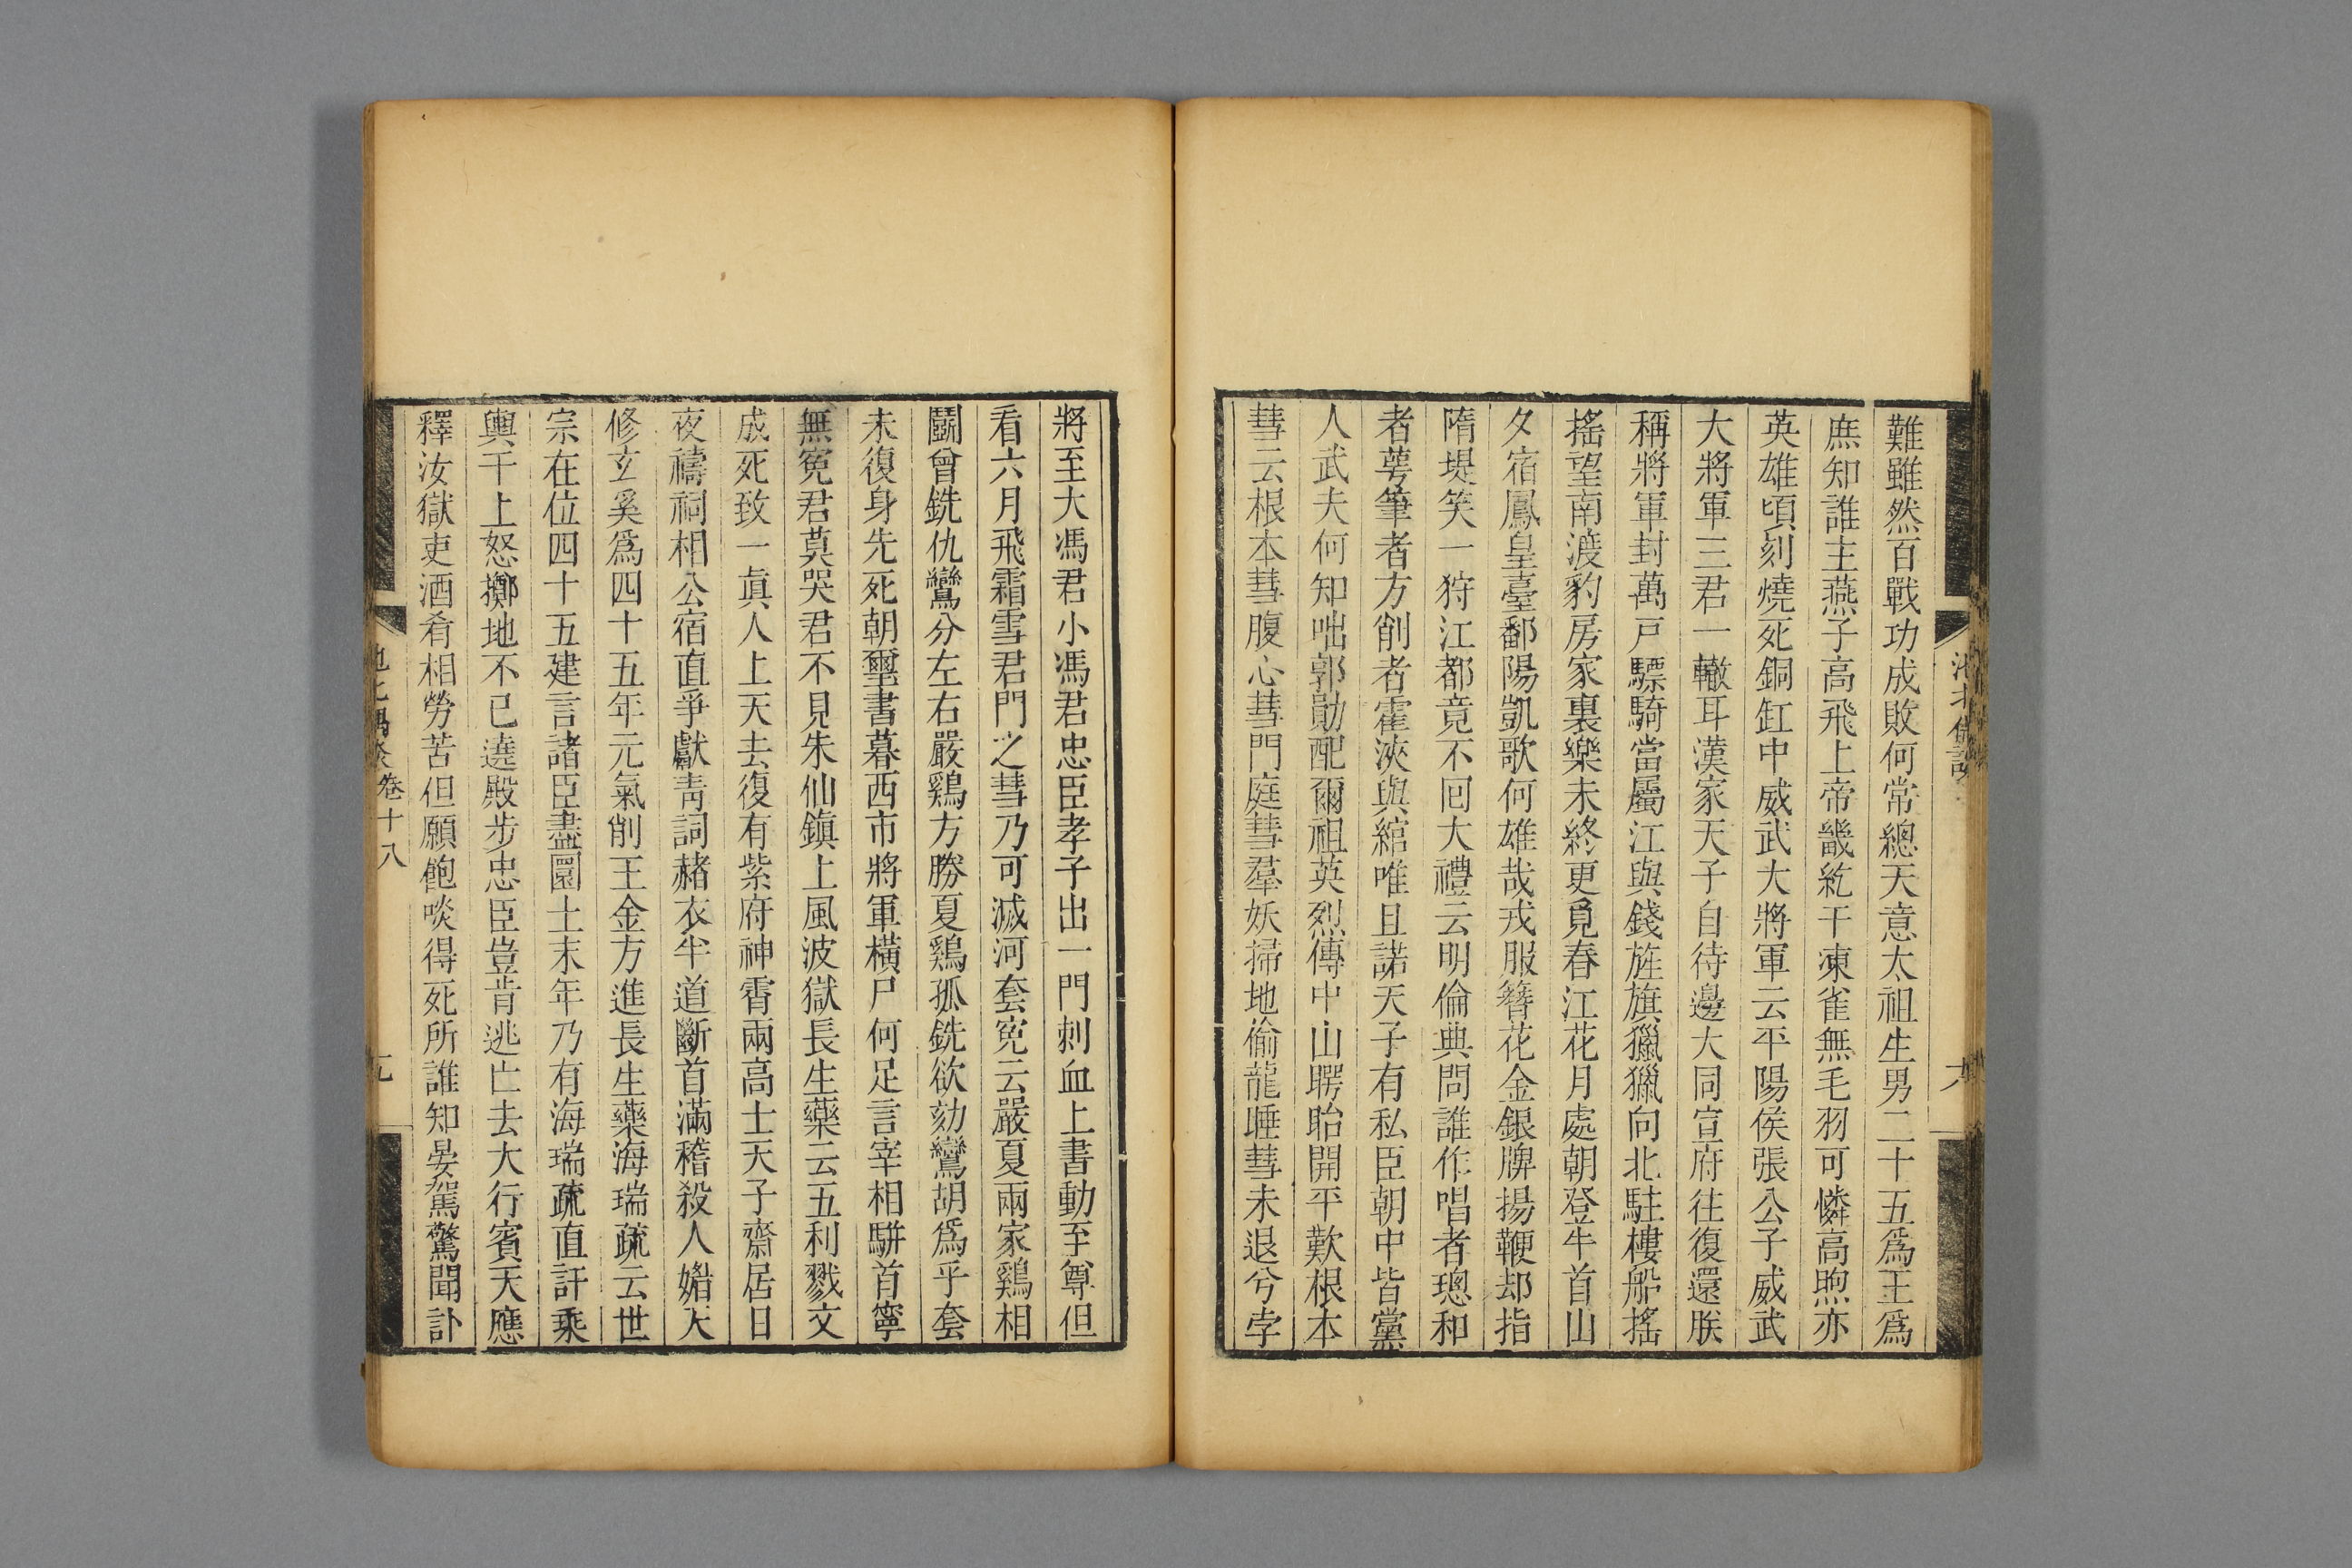 難雖然百戰功成敗何常總天意太祖生男二十五爲王爲
庶知誰主燕子高飛上帝畿紇干凍雀無毛羽可憐高煦亦
英雄頃刻燒死銅缸中威武大將軍云平陽侯張公子威武
大將軍三君一轍耳漢家天子自待邊大同宣府往復還朕
稱將軍封萬戸驃騎當屬江與錢旌旗獵獵向北駐樓船搖
搖望南渡豹房家裏樂未終更覓春江花月處朝登牛首山
夕宿鳳皇臺鄱陽凱歌何雄哉戎服簪花金銀牌揚鞭却指
隋堤笑一狩江都竟不回大禮云明倫典問誰作唱者璁和
者萼筆者方削者霍浹與綰唯且諾天子有私臣朝中皆黨
人武夫何知咄郭勛配爾祖英烈傳中山腭眙開平歎根本
彗云根本彗腹心彗門庭彗羣妖掃地偷龍睡彗未退兮孛
池北偶談
六
將至大馮君小馮君忠臣孝子出一門刺血上書動至尊但
看六月飛霜雪君門之彗乃可滅河套寃云嚴夏兩家鷄相
鬭曾銑仇鸞分左右嚴鷄方勝夏鷄孤銑欲劾鸞胡爲乎套
未復身先死朝璽書暮西市將軍橫尸何足言宰相駢首寧
無寃君莫哭君不見朱仙鎮上風波獄長生藥云五利戮文
成死致一眞人上天去復有紫府神霄兩高士天子齋居日
夜禱祠相公宿直爭獻靑詞赭衣半道斷首滿稽殺人媚天
修玄奚爲四十五年元氣削王金方進長生藥海瑞疏云世
宗在位四十五建言諸臣盡圜土末年乃有海瑞疏直訐乘
輿千上怒擲地不已遶殿步忠臣豈肯逃亡去大行賓天應
釋汝獄吏酒肴相勞苦但願飽啖得死所誰知晏駕驚聞訃
卷十八